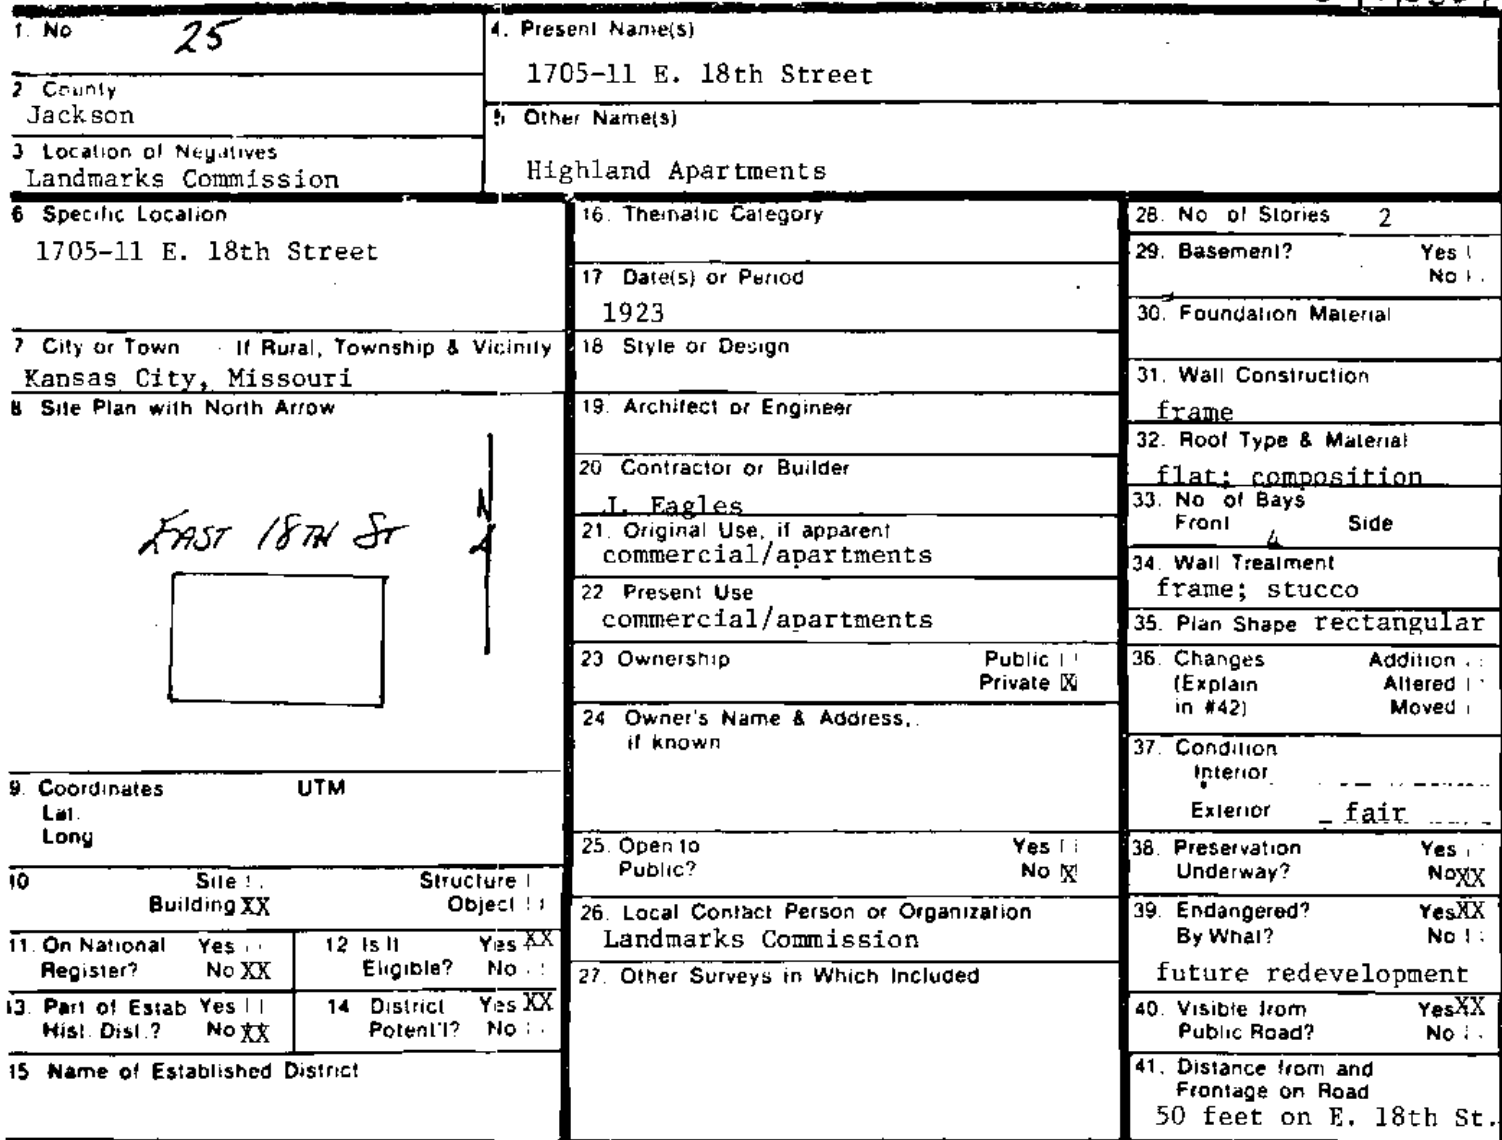 1. No 25
2 County
Jackson
3 Location of Negatives
Landmarks Commission
4. Present Name(s)
1705-11 E. 18th Street
5 Other Name(s)
Highland Apartments
6 Specific Location
1705-11 E. 18th Street
7 City or Town If Rural, Township & Vicinity
Kansas City, Missouri
8 Site Plan with North Arrow
EAST 18TH ST
N
9. Coordinates UTM
Lat.
Long
10 Site Structure
Building XX Object
11. On National Register? Yes No XX
12 Is It Eligible? Yes XX No
13. Part of Estab Hist. Dist.? Yes No XX
14 District Potent'l? Yes XX No
15 Name of Established District
16. Thematic Category
17 Date(s) or Period
1923
18 Style or Design
19. Architect or Engineer
20 Contractor or Builder
Eagles
21. Original Use, if apparent
commercial/apartments
22 Present Use
commercial/apartments
23 Ownership Public
Private X
24 Owner's Name & Address,
if known
25. Open to Yes
Public? No X
26. Local Contact Person or Organization
Landmarks Commission
27. Other Surveys in Which Included
28. No of Stories 2
29. Basement? Yes
No
30. Foundation Material
31. Wall Construction
frame
32. Roof Type & Material
flat; composition
33. No of Bays
Front 4 Side
34. Wall Treatment
frame; stucco
35. Plan Shape rectangular
36. Changes Addition
(Explain Altered
in #42) Moved
37. Condition
Interior
Exterior fair
38. Preservation Yes
Underway? No XX
39. Endangered? Yes XX
By What? No
future redevelopment
40. Visible from Yes XX
Public Road? No
41. Distance from and
Frontage on Road
50 feet on E. 18th St.